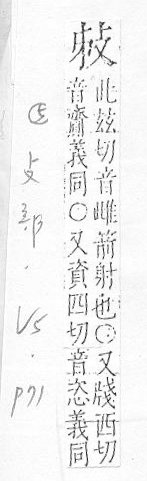 此玆切音雌箭射也〇又牋西切
音齎義同〇又資四切音恣義同
攴部.V5.P71